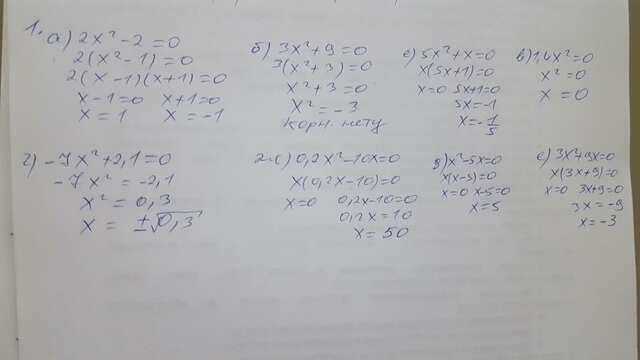 1. а) 2x² - 2 = 0
2(x² - 1) = 0
2(x - 1)(x + 1) = 0
x - 1 = 0 x + 1 = 0
x = 1 x = -1
б) 3x² + 9 = 0
3(x² + 3) = 0
x² + 3 = 0
x² = -3
корн. нету
с) 5x² + x = 0
x(5x + 1) = 0
x = 0 5x + 1 = 0
5x = -1
x = -1/5
в) 1,4x² = 0
x² = 0
x = 0
г) -7x² + 2,1 = 0
-7x² = -2,1
x² = 0,3
x = ±√0,3
2. с) 0,2x² - 10x = 0
x(0,2x - 10) = 0
x = 0 0,2x - 10 = 0
0,2x = 10
x = 50
д) x² - 5x = 0
x(x - 5) = 0
x = 0 x - 5 = 0
x = 5
е) 3x² + 9x = 0
x(3x + 9) = 0
x = 0 3x + 9 = 0
3x = -9
x = -3